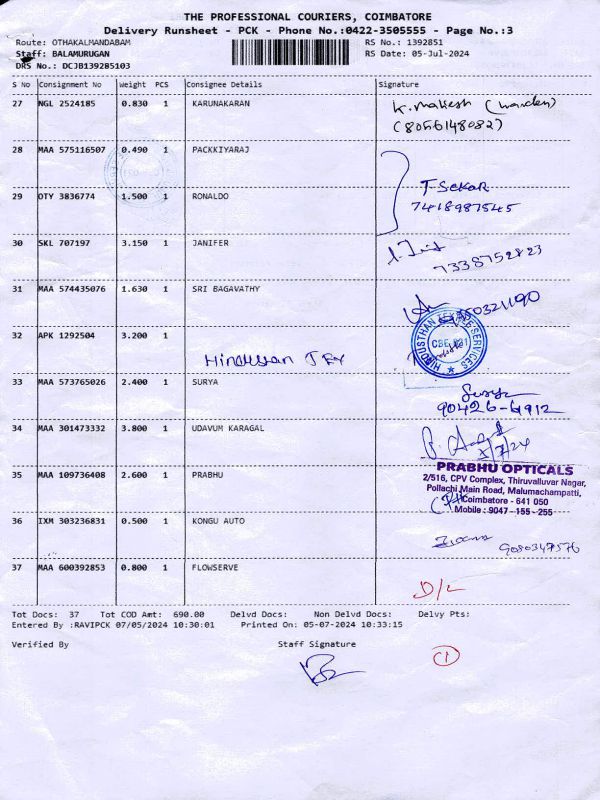 THE PROFESSIONAL COURIERS, COIMBATORE
Delivery Runsheet - PCK - Phone No.:0422-3505555 - Page No.:3
Route: OTHAKALMANDABAM RS No.: 1392851
Staff: BALAMURUGAN RS Date: 05-Jul-2024
DRS No.: DCJB139285103
S No Consignment No Weight PCS Consignee Details Signature
27 NGL 2524185 0.830 1 KARUNAKARAN K. Mahesh
(8056148082)
28 MAA 575116507 0.490 1 PACKKIYARAJ
T. Sekar
29 OTY 3836774 1.500 1 RONALDO 7418987545
30 SKL 707197 3.150 1 JANIFER
7338752823
31 MAA 574435076 1.630 1 SRI BAGAVATHY
32 APK 1292504 3.200 1
HINDUSTHAN SERVICES CBE
Hindustan
33 MAA 573765026 2.400 1 SURYA Surya
90426-61912
34 MAA 301473332 3.800 1 UDAVUM KARAGAL
35 MAA 109736408 2.600 1 PRABHU PRABHU OPTICALS
2/516, CPV Complex, Thiruvalluvar Nagar,
Pollachi Main Road, Malumachampatti,
Coimbatore - 641 050
Mobile : 9047 - 155 - 255
36 IXM 303236831 0.500 1 KONGU AUTO
9080347576
37 MAA 600392853 0.800 1 FLOWSERVE
D/L
Tot Docs: 37 Tot COD Amt: 690.00 Delvd Docs: Non Delvd Docs: Delvy Pts:
Entered By :RAVIPCK 07/05/2024 10:30:01 Printed On: 05-07-2024 10:33:15
Verified By Staff Signature
1